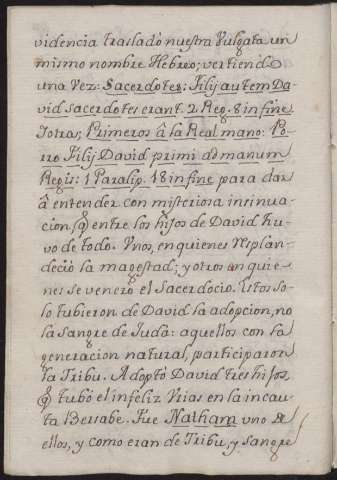 videncia trasladò nuestra Vulgata un
mismo nombre Hebreo; vertiendo
una vez: Sacerdotes: Filij autem Da-
vid sacerdotes erant. 2. Reg. 8 in fine
Yotras; Primeros â la Real mano: Po-
rro Filij David primi ad manum
Regis: 1 Paralip. 18 in fine para dar
â entender con misteriosa insinua-
cion, q̃ entre los hijos de David hu-
vo de todo. Unos, en quienes resplan-
deciò la magestad; y otros en quie-
nes se venerò el Sacerdocio. Estos so-
lo tubieron de David la adopcion, no
la Sangre de Judà: aquellos con la
generacion natural, participaron
la Tribu. Adoptò David tres hijos,
q̃ tubo el infeliz Urias en la incau-
ta Bersabe. Fue Natham uno de
ellos, y como eran de Tribu, y Sangre